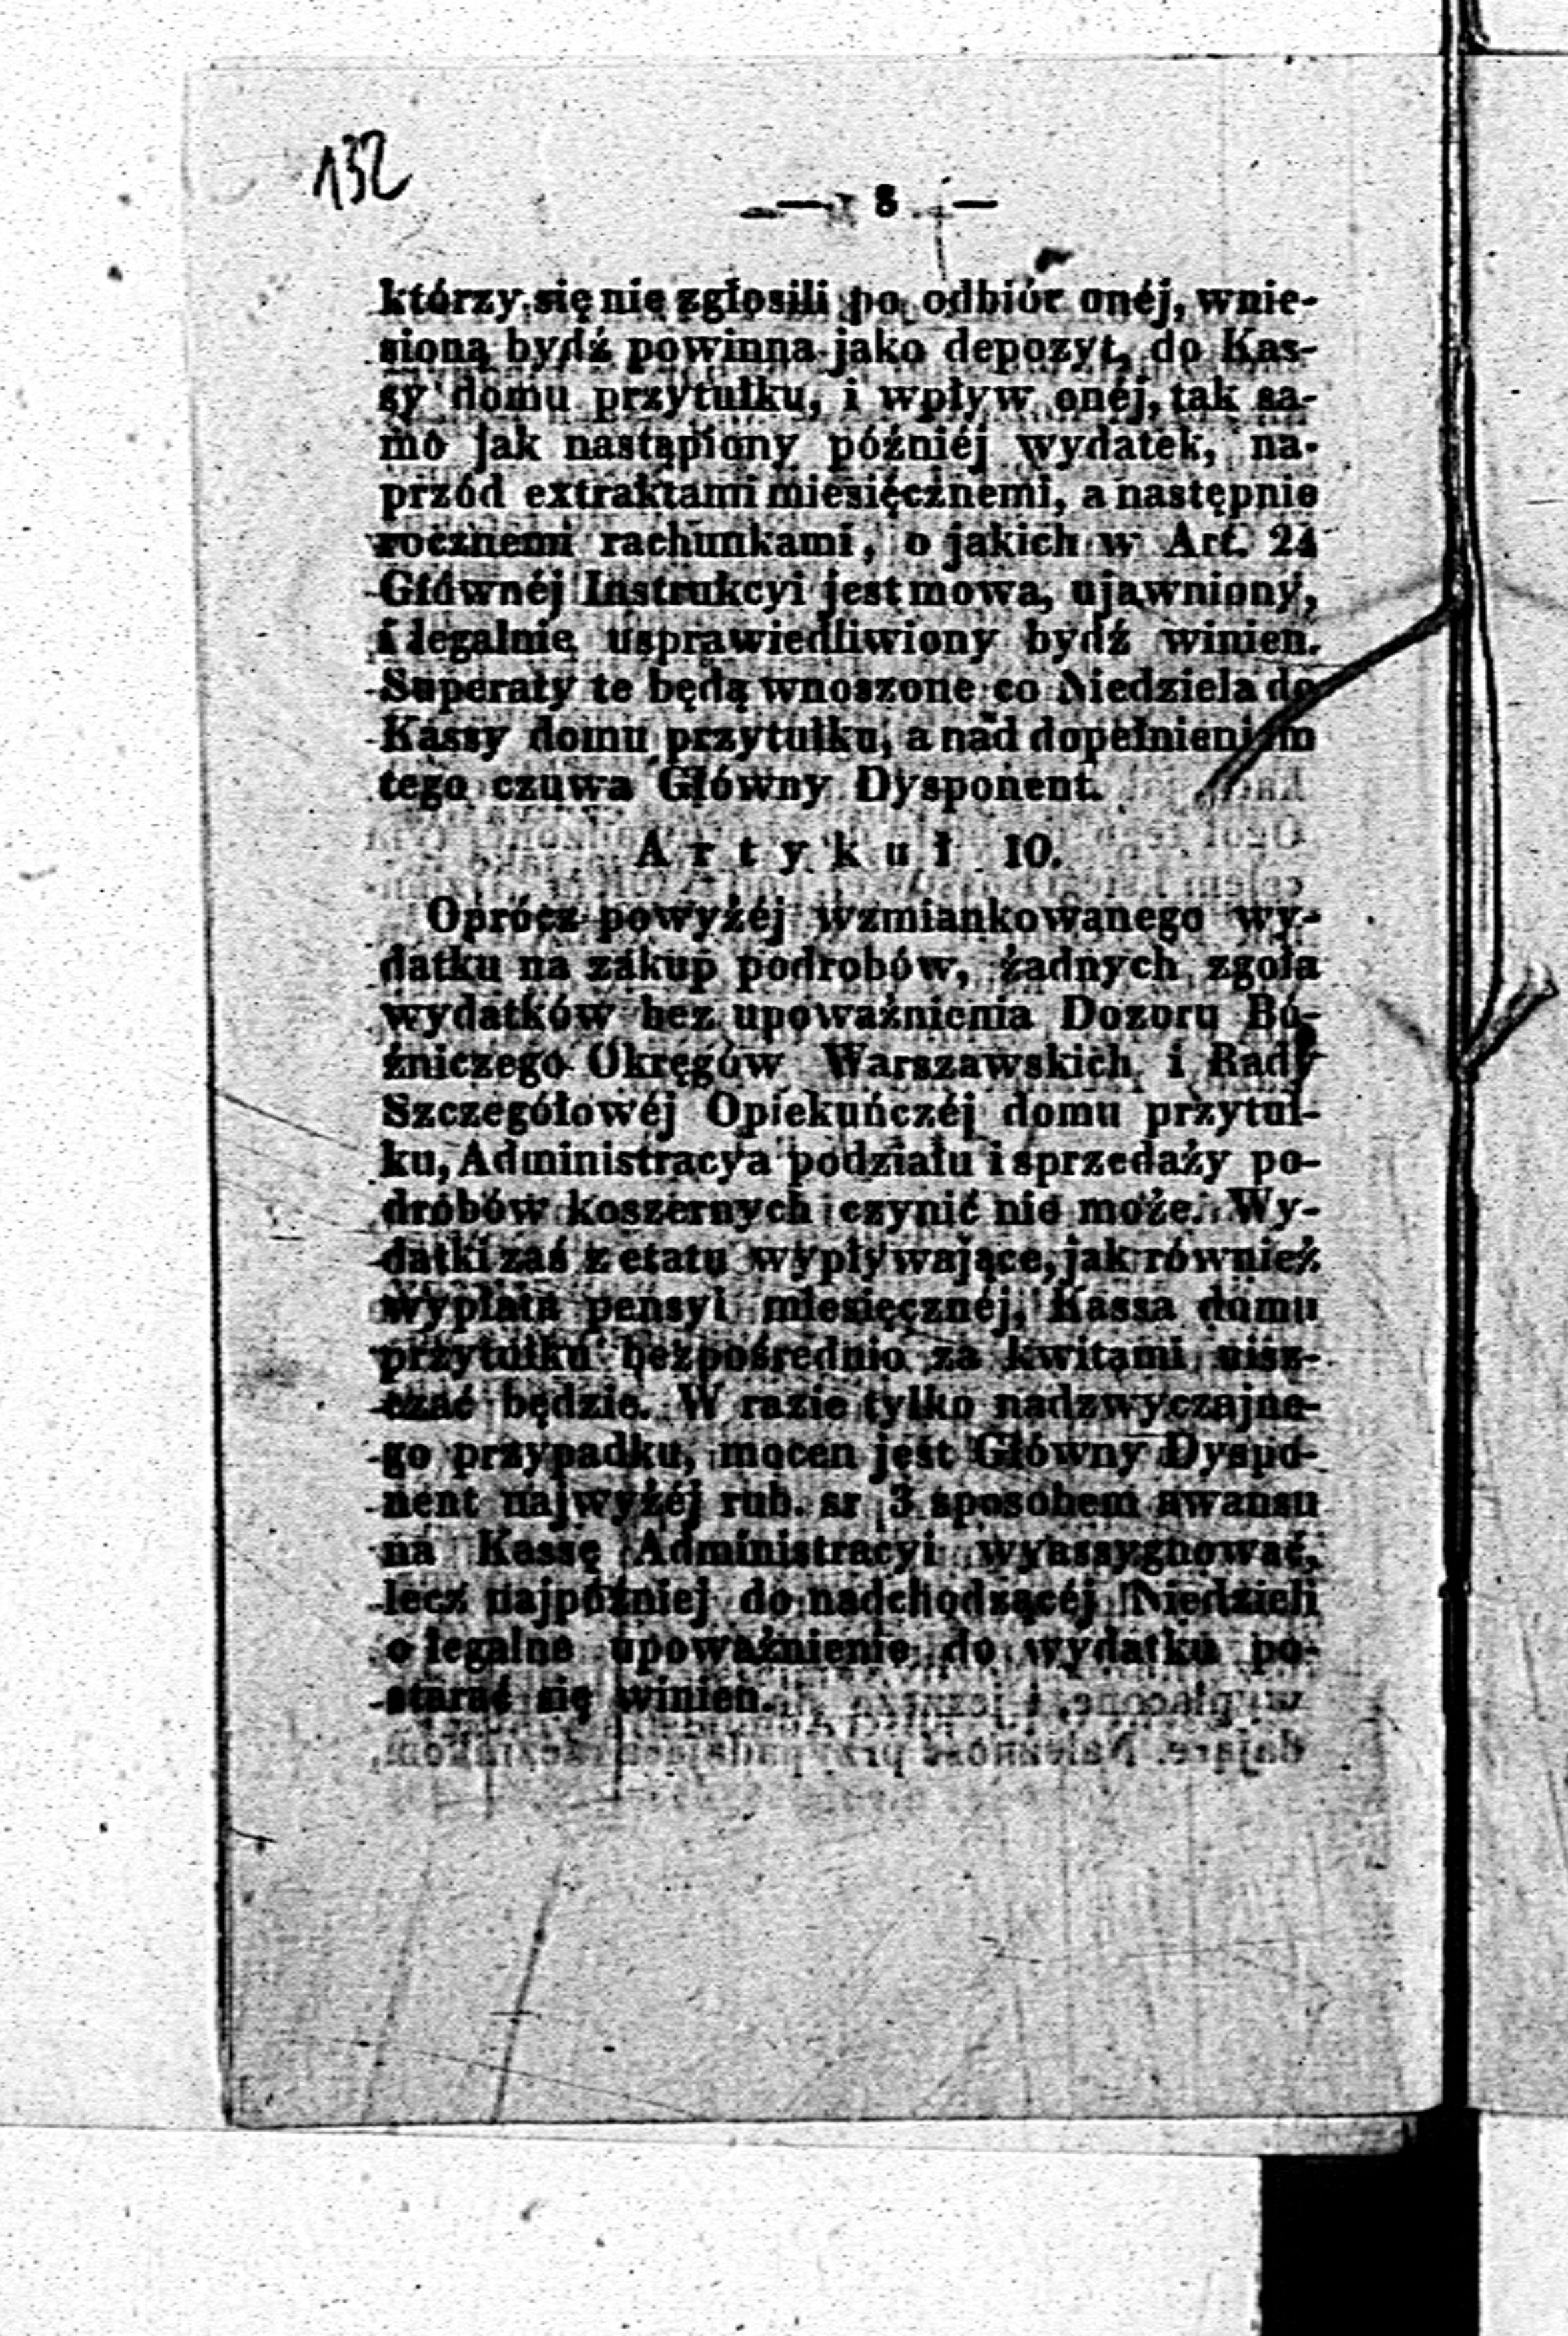 132
— 8 —
którzy się nie zgłosili po odbiór onéj, wnie-
sioną bydź powinna jako depozyt, do Kas-
sy domu przytułku, i wpływ onéj, tak sa-
mo jak nastąpiony późniéj wydatek, na-
przód extraktami miesięcznemi, a następnie
rocznemi rachunkami, o jakich w Art. 24
Głównéj Instrukcyi jest mowa, ujawniony,
i legalnie usprawiedliwiony bydź winien.
Superaty te będą wnoszone co Niedziela do
Kassy domu przytułku, a nad dopełnieniem
tego czuwa Główny Dysponent.
Artykuł 10.
Oprócz powyżéj wzmiankowanego wy-
datku na zakup podrobów, żadnych zgoła
wydatków bez upoważnienia Dozoru Bó-
źniczego Okręgów Warszawskich i Rady
Szczegółowéj Opiekuńczéj domu przytuł-
ku, Administracya podziału i sprzedaży po-
drobów koszernych czynić nie może. Wy-
datki zaś z etatu wypływające, jak również
wypłata pensyi miesięcznéj, Kassa domu
przytułku bezpośrednio za kwitami uisz-
czać będzie. W razie tylko nadzwyczajne-
go przypadku, mocen jest Główny Dyspo-
nent najwyżéj rub. sr 3 sposobem awansu
na Kassę Administracyi wyassygnować,
lecz najpóźniej do nadchodzącéj Niedzieli
o legalne upoważnienie do wydatku po-
starać się winien.